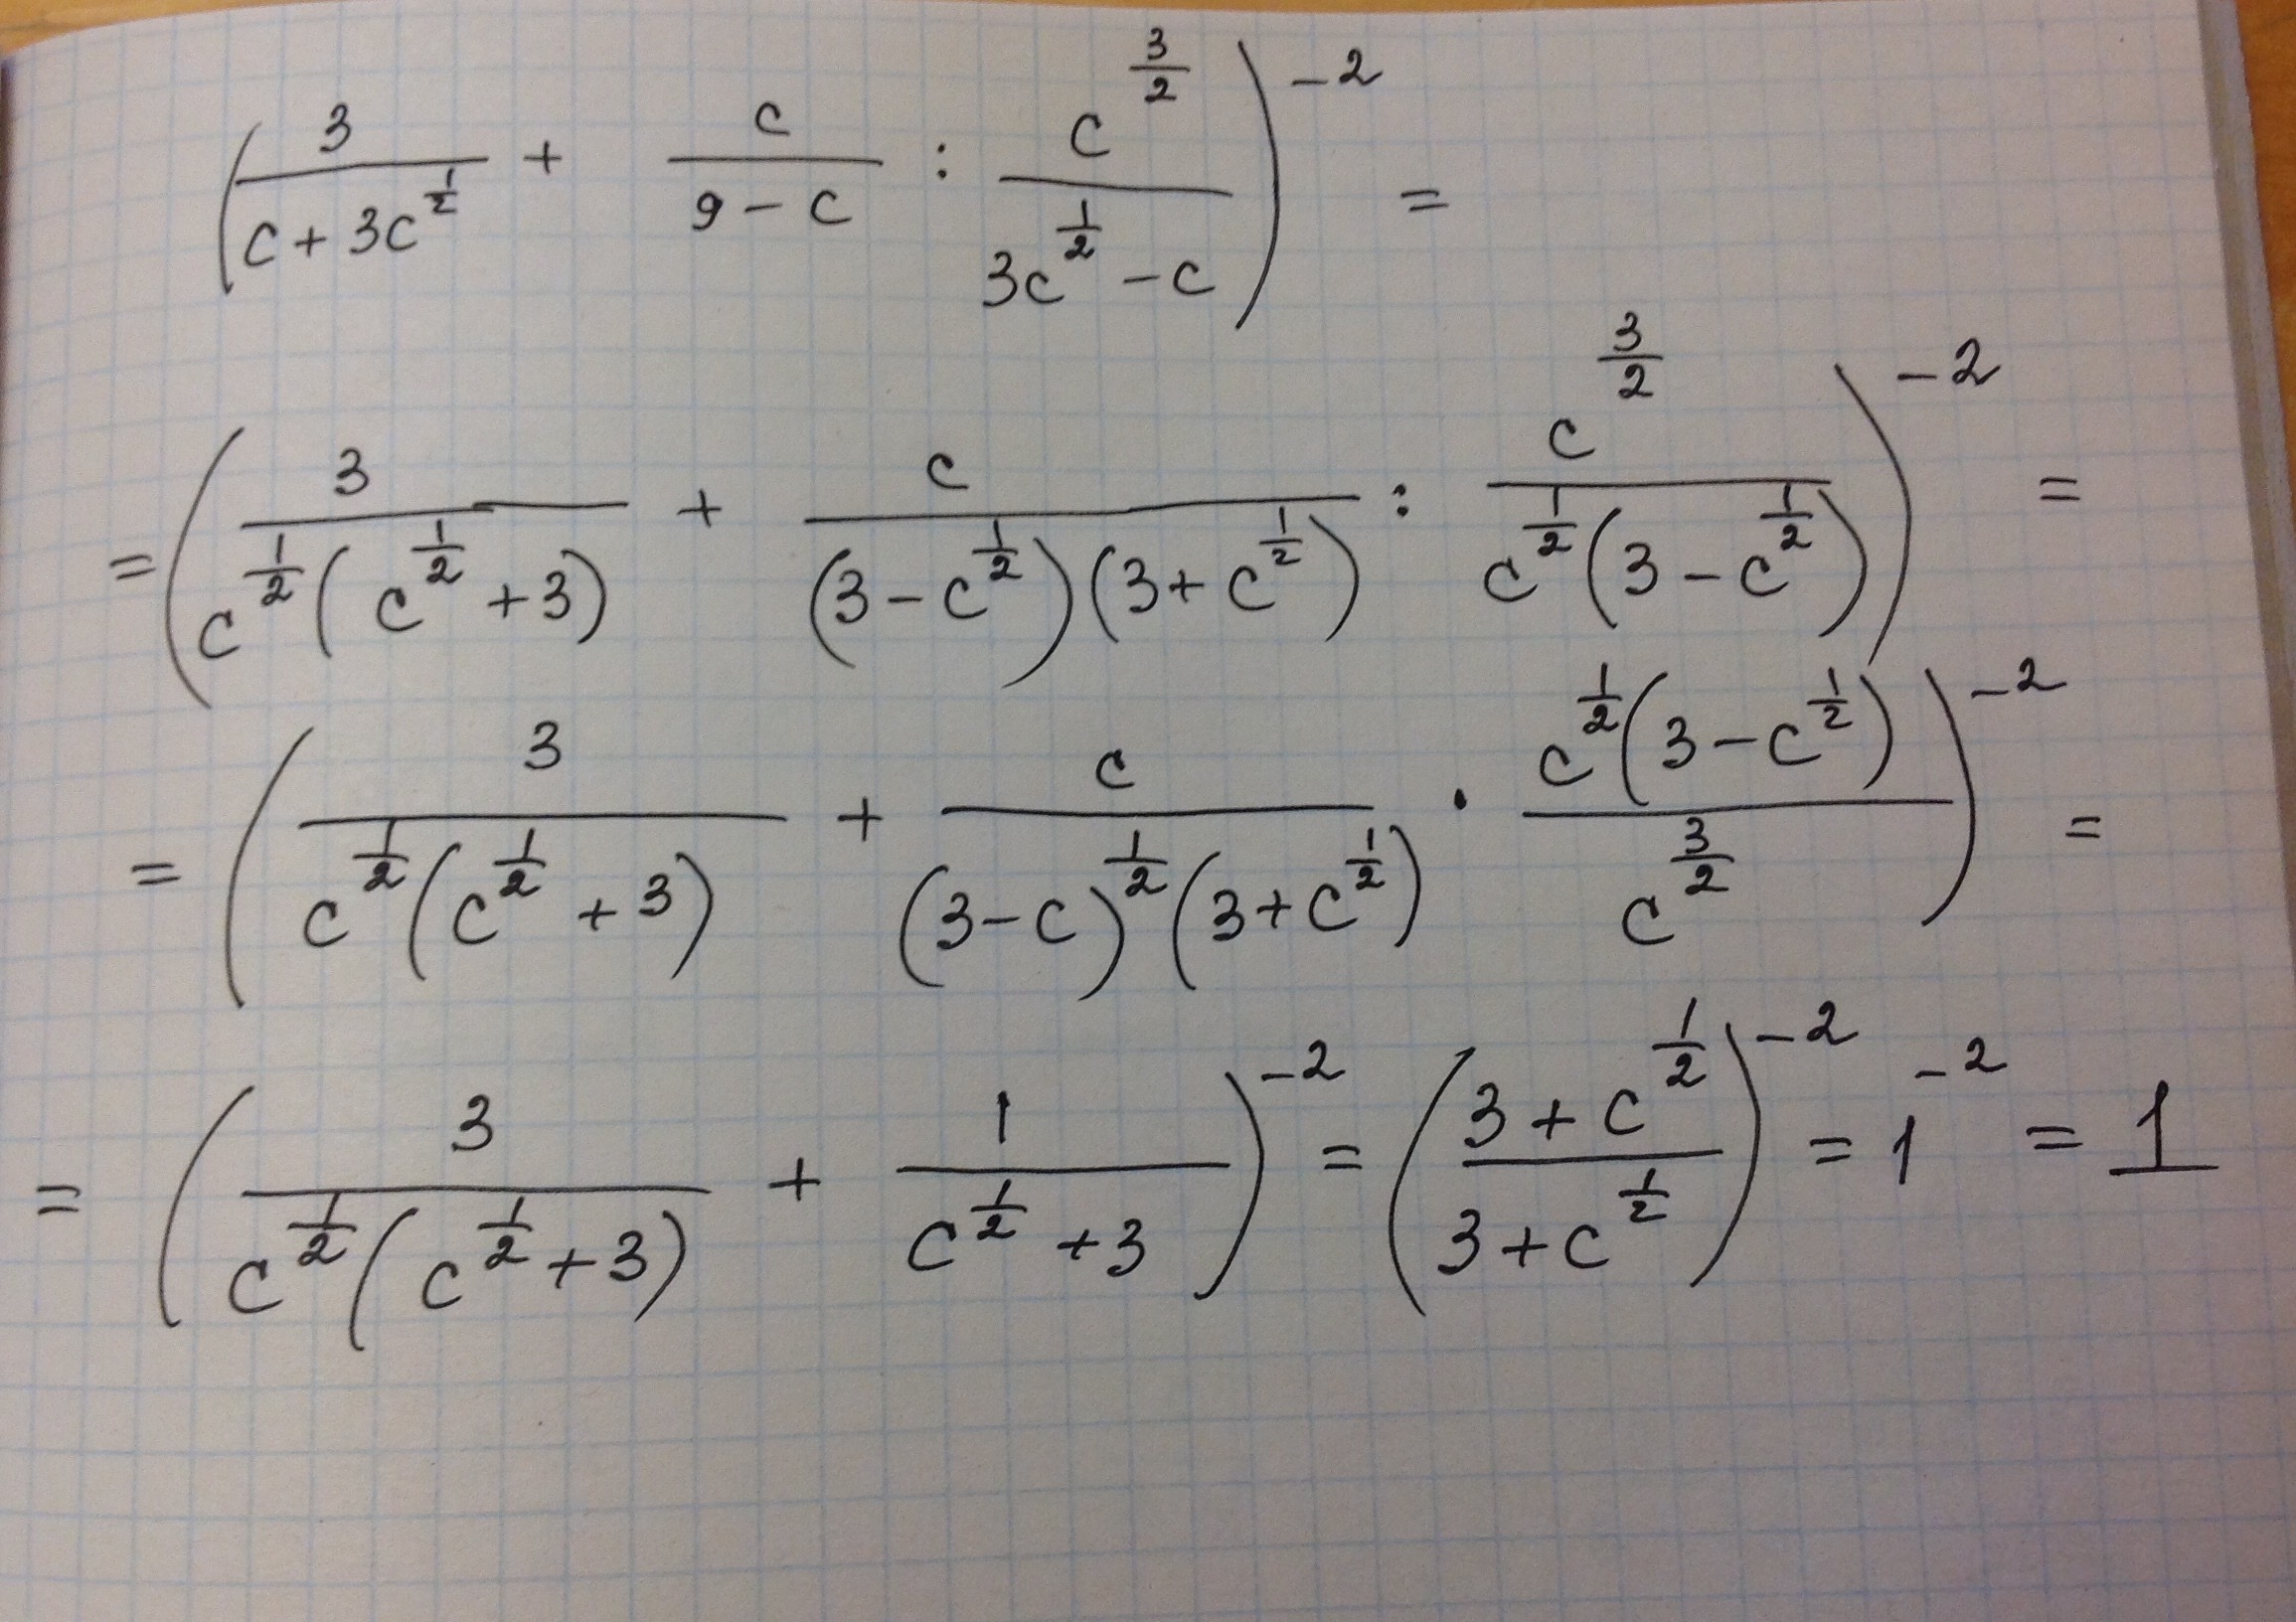 (3/(c + 3c^(1/2)) + c/(9 − c) : c^(3/2)/(3c^(1/2) − c))^(−2) =
= (3/(c^(1/2)(c^(1/2) + 3)) + c/((3 − c^(1/2))(3 + c^(1/2))) : c^(3/2)/(c^(1/2)(3 − c^(1/2))))^(−2) =
= (3/(c^(1/2)(c^(1/2) + 3)) + c/((3 − c)^(1/2)(3 + c^(1/2))) · c^(1/2)(3 − c^(1/2))/c^(3/2))^(−2) =
= (3/(c^(1/2)(c^(1/2) + 3)) + 1/(c^(1/2) + 3))^(−2) = ((3 + c^(1/2))/(3 + c^(1/2)))^(−2) = 1^(−2) = 1